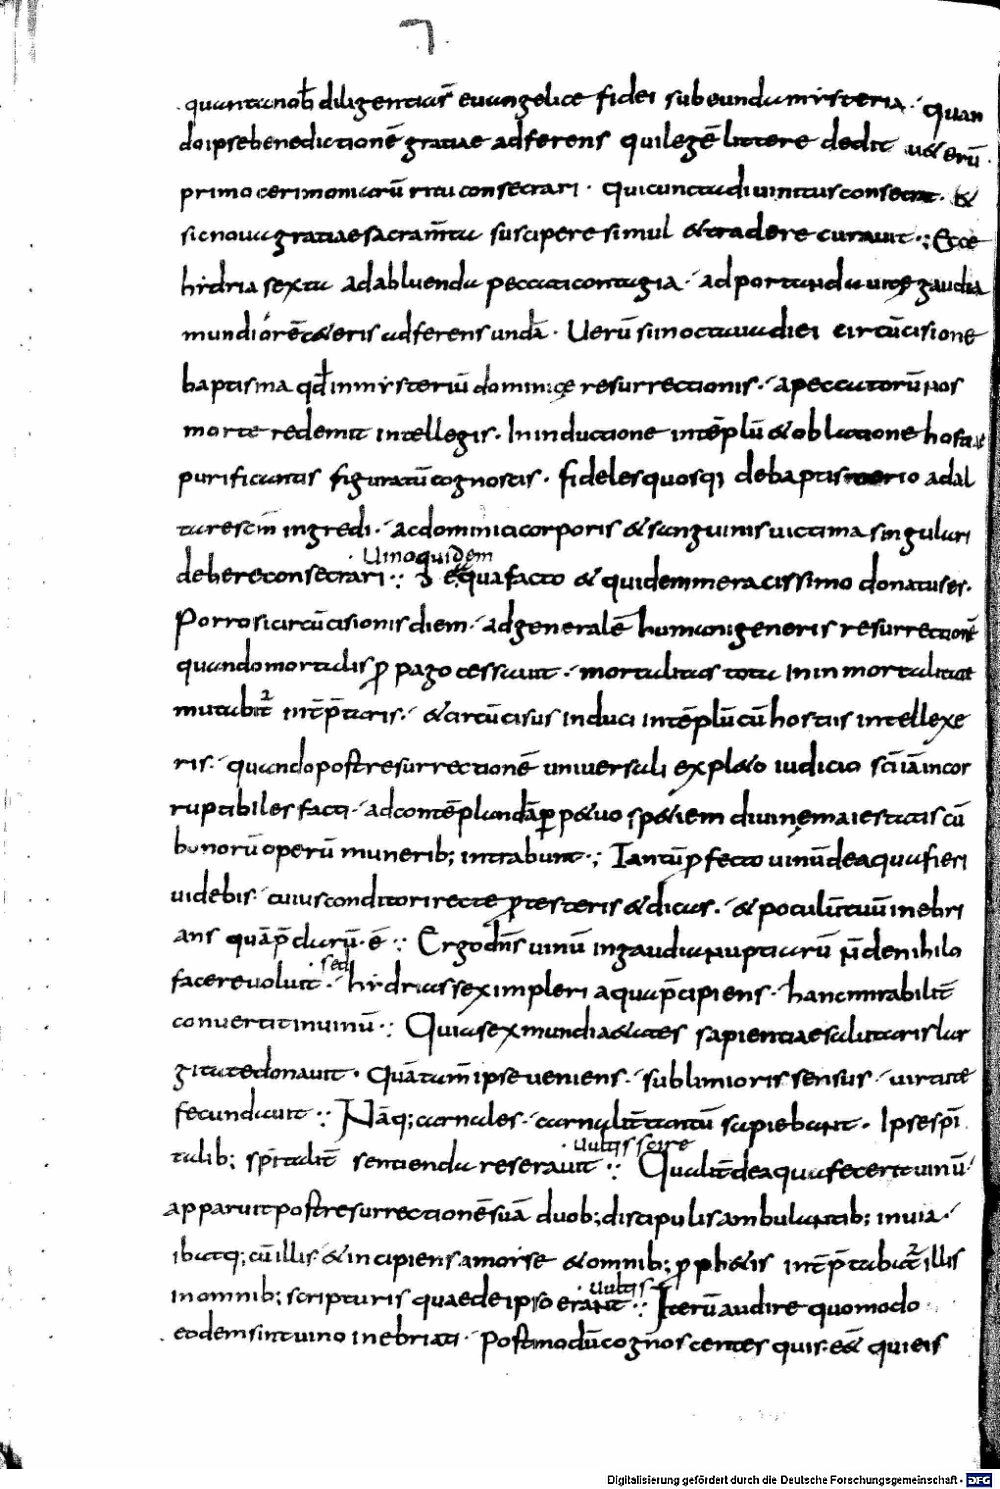 quanta nob̄ diligentiaē euangelice fidei subeunda mysteria · quan
do ipse benedictionē gratiae adferens qui legē littere dedit u&erū
primo cerimoniarū ritu consecrari · qui cuncta diuinitus consecrat · &
sic noua gratiae sacram̄ta suscipere simul & tradere curauit ·: Ecce
hẏdria sexta ad abluenda peccati contagia · ad portanda uitę gaudia
mundiorē c&eris adferens undā · Uerū si in octaua diei circūcisione
baptisma qđ in mẏsteriū dominicę resurrectionis · a peccatorū nos
morte redemit intellegis · In inductione in tēplū & oblatione hostiae
purificantis figuratū cognoscis · fideles quosq; de baptisterio ad al
tare scm̄ ingredi · ac dominici corporis & sanguinis uictima singulari
· Uino quidem
debere consecrari ·: ex aqua facto & quidem meracissimo donatus es ·
Porro si circūcisionis diem · ad generalē humani generis resurrectionē
quando mortalis ꝓpago cessauit · mortalitas tota in inmortalitatē
mutabit̄ int̄p̄taris · & circūcisus induci in tēplū cū hostiis intellexe
ris · quando post resurrectionē uniuersali expl&o iudicio sc̄i iā incor
ruptibiles facti · ad contēplandā ꝑp&uo sp&iem diuinę maiestatis cū
bonorū operū munerib; intrabunt ·; Tantū ꝓfecto uinū de aqua fieri
uidebis · cuius conditori recte ꝓtesteris & dicas · & poculū tuū inebri
ans quā p̄clarū · ē ·: Ergo dn̄s uinū in gaudia nuptiarū n̄ de nihilo
· sed
facere uoluit · hẏdrias sex impleri aqua p̄cipiens · hanc mirabilit̄
conuertit in uinū ·: Quia sex mundi a&ates sapientiae salutaris lar
gitate donauit · Quā tam̄ ipse ueniens · sublimioris sensus · uirtute
fecundauit ·: Nāq; carnales · carnalit̄ tantū sapiebant · Ipse sp̄i
· Uultis scire
talib; sp̄italit̄ sentienda reserauit ·: Qualit̄ de aqua fecerit uinū
apparuit post resurrectionē suā duob; discipulis ambulantib; in uia ·
ibatq; cū illis · & incipiens a moẏse & omnib; ꝓph&is int̄p̄tabat̄ illis
· uultis
in omnib; scripturis quae de ipso erant ·: Iterū audire quomodo
eodem sint uino inebriati · Postmodū cognoscentes quis · e&̄ qui eis
Digitalisierung gefördert durch die Deutsche Forschungsgemeinschaft - DFG